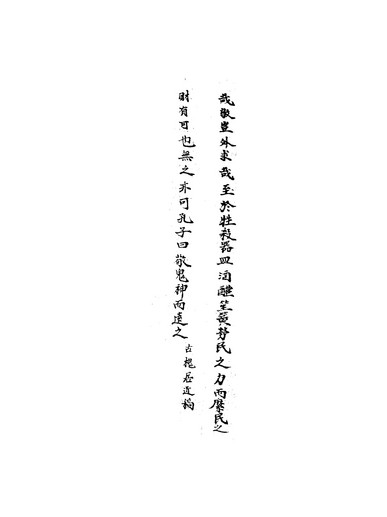 哉敬豈外求哉至於牲殺器皿酒醴笙簧勞民之力而糜民之
財有可也無之亦可孔子曰敬鬼神而遠之 古槐居近稿